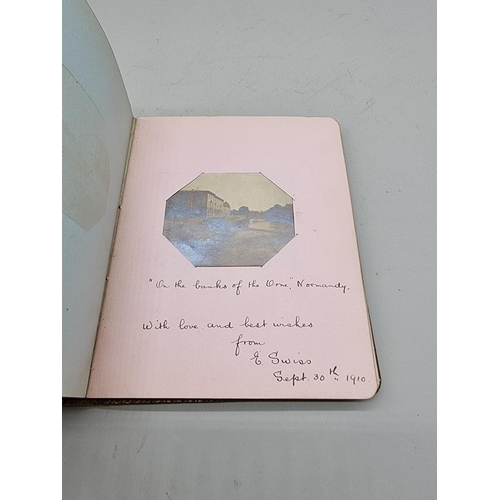 "On the banks of the Orne", Normandy.
With love and best wishes
from
E. Swiss
Sept. 30th 1910.